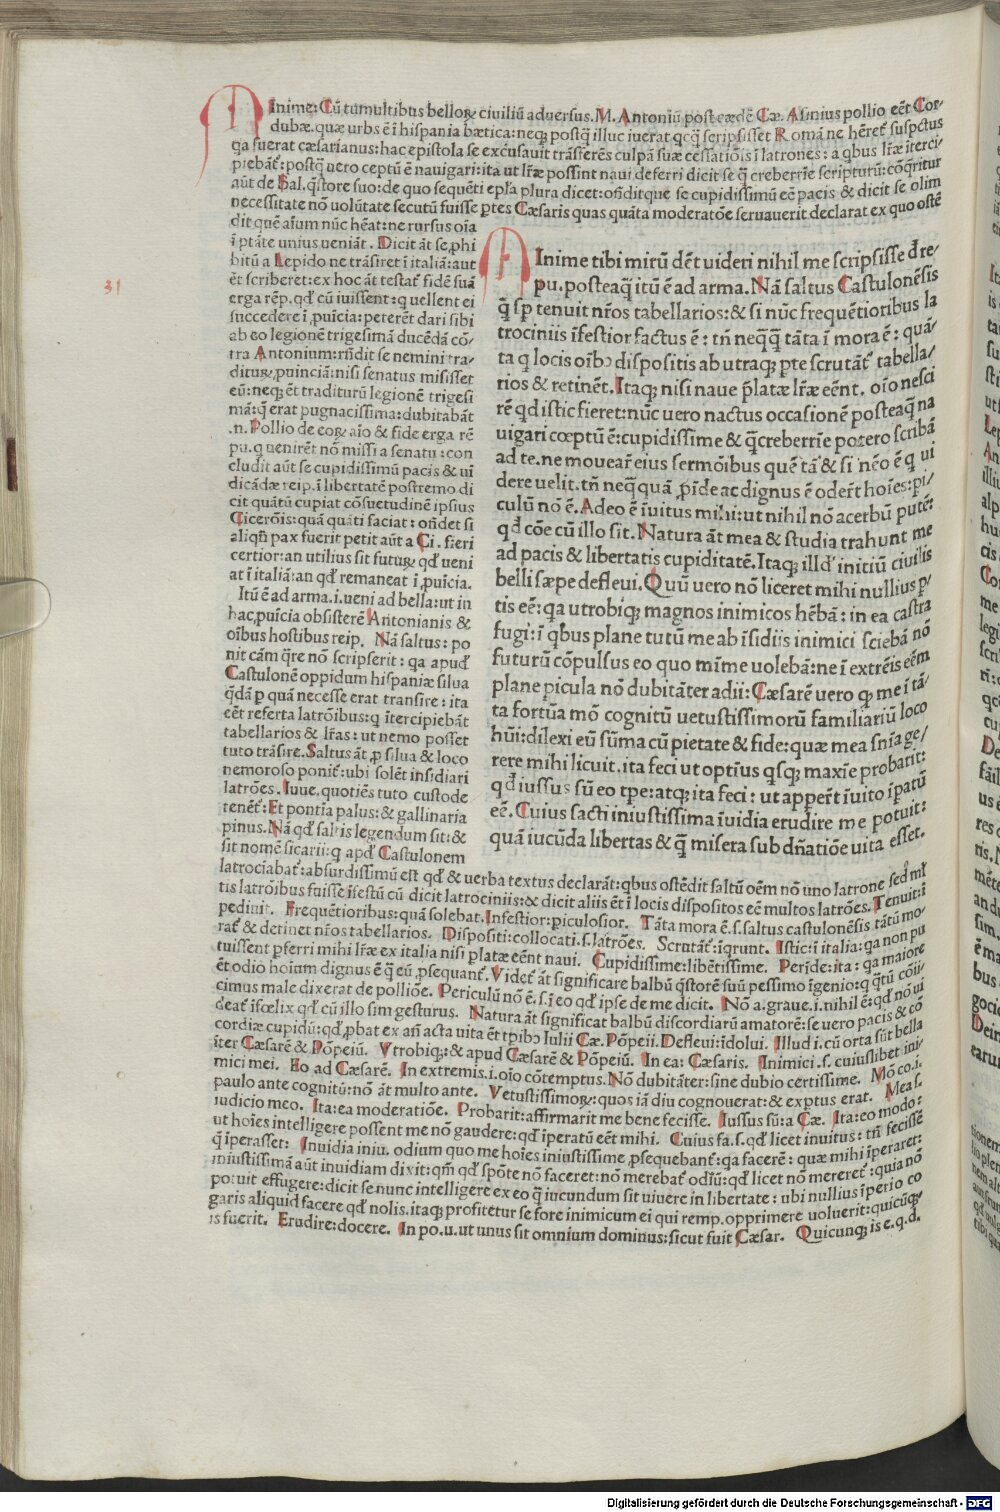 Inime: Cũ tumultibus belloꝝ ciuiliũ aduersus. M. Antoniũ post cædẽ Cæ. Asinius pollio eẽt Cor-
dubæ. quæ urbs ẽ ĩ hispania bætica: neqꝫ postq̃ illuc iuerat qcq̃ scripsisset Romã ne hẽret suspctus
qa fuerat cæsarianus: hac epistola se excusauit trãsferẽs culpã suæ cessatiõis ĩ latrones: a qbus lr̃æ ĩterci-
piebãt: postq̃ uero ceptũ ẽ nauigari: ita ut lr̃æ possint naui deferri dicit se q̃ creberrie scripturũ: cõqritur
aũt de Bal. q̃store suo: de quo sequẽti epl̃a plura dicet: oñditque se cupidissimũ eẽ pacis & dicit se olim
necessitate nõ uolũtate secutũ fuisse ꝑtes Cæsaris quas quãta moderatõe seruauerit declarat ex quo ostẽ
dit quẽ aĩum nũc hẽat: ne rursus oĩa
ĩ ptãte unius ueniãt. Dicit ãt se ꝓhi
bitũ a Lepido ne trãsiret ĩ italiã: aut
ẽt scriberet: ex hoc ãt testat fidẽ suã
erga rẽp. qđ cũ iuissent: q uellent ei
succedere ĩ ꝓuĩcia: peterẽt dari sibi
ab eo legionẽ trigesimã ducẽdã cõ-
tra Antonium: rñdit se nemini tra-
diturꝝ ꝓuinciã: nisi senatus misisset
eũ: neqꝫ ẽt traditurũ legionẽ trigesi
mã: q̃ erat pugnacissima: dubitabãt
.n. Pollio de eoꝝ aĩo & fide erga rẽ
pu. q uenirẽt nõ missi a senatu: con
cludit aũt se cupidissimũ pacis & uĩ
dicãdæ reip. ĩ libertatẽ postremo di
cit quãtũ cupiat cõsuetudinẽ ipsius
Cicerõis: quã quãti faciat: oñdet si
aliqñ pax fuerit petit aũt a Ci. fieri
certior: an utilius sit futuꝝ qđ ueni
at ĩ italiã: an qđ remaneat ĩ ꝓuĩcia.
Itũ ẽ ad arma. i. ueni ad bella: ut in
hac ꝓuĩcia obsisterẽ Antonianis &
oĩbus hostibus reip. Nã saltus: po
nit cãm q̃re nõ scripserit: qa apud
Castulonẽ oppidum hispaniæ silua
q̃dã ꝑ quã necesse erat transire: ita
eẽt referta latrõibus: q ĩtercipiebãt
tabellarios & lr̃as: ut nemo posset
tuto trãsire. Saltus ãt ꝑ silua & loco
nemoroso ponit: ubi solẽt insidiari
latrões. Iuue. quotiẽs tuto custode
tenẽt: Et pontia palus: & gallinaria
pinus. Nã qđ saltis legendum sit: &
sit nomẽ sicarii: q apđ Castulonem
latrociabat: absurdissimũ est qđ & uerba textus declarãt: qbus ostẽdit saltũ oẽm nõ uno latrone sed ml̃
tis latrõibus fuisse ĩfestũ cũ dicit latrociniis: & dicit aliis ẽt ĩ locis dispositos eẽ multos latrões. Tenuit: ĩ
pediuit. Frequẽtioribus: quã solebat. Infestior: piculosior. Tãta mora ẽ. s. saltus castulonẽsis tãtũ mo-
rat & detinet nr̃os tabellarios. Dispositi: collocati. s. latrões. Scrutãt: ĩqrunt. Istic: ĩ italia: qa non pu
tuissent ꝑferri mihi lr̃æ ex italia nisi platæ eẽnt naui. Cupidissime: libẽtissime. Perĩde: ita: qa maiore
ẽt odio hoium dignus ẽ q̃ eũ ꝓsequant. Videt ãt significare balbũ q̃storẽ suũ pessimo ĩgenio: q q̃tũ cõii-
cimus male dixerat de polliõe. Periculũ nõ ẽ. s. ĩ eo qđ ipse de me dicit. Nõ a. graue. i. nihil ẽ: qđ nõ ui
deat ĩfœlix qđ cũ illo sim gesturus. Natura ãt significat balbũ discordiarũ amatorẽ: se uero pacis & cõ
cordiæ cupidũ: qđ ꝓbat ex añ acta uita ẽt tpibꝰ Iulii Cæ. Põpeii. Defleui: idolui. Illud i. cũ orta sũt bella
ĩter Cæsarẽ & Põpeiũ. Vtrobiqꝫ: & apud Cæsarẽ & Põpeiũ. In ea: Cæsaris. Inimici. s. cuiuslibet ini-
mici mei. Eo ad Cæsarẽ. In extremis. i. oĩo cõtemptus. Nõ dubitãter: sine dubio certissime. Mõ co. i.
paulo ante cognitũ: nõ ãt multo ante. Vetustissimoꝝ: quos iã diu cognouerat: & exptus erat. Mea s.
iudicio meo. Ita: ea moderatiõe. Probarit: affirmarit me bene fecisse. Iussus sũ: a Cæ. Ita: eo modo:
ut hoies intelligere possent me nõ gaudere: qđ ĩperatũ eẽt mihi. Cuius fa. s. qđ licet inuitus: tñ fecisse
q̃ ĩperasset: Inuidia iniu. odium quo me hoies iniustissime ꝓsequebant: qa facerẽ: quæ mihi ĩperaret:
iniustissimã aũt inuidiam dixit: qm̃ qđ spõte nõ faceret: nõ merebat odĩũ: qđ licet nõ mereret: quia nõ
potuit effugere: dicit se nunc intelligere ex eo q̃ iucundum sit uiuere in libertate: ubi nullius ĩperio co
garis aliquid facere qđ nolis. itaqꝫ profitetur se fore inimicum ei qui remp. opprimere uoluerit: quicũqꝫ
is fuerit. Erudire: docere. In po. u. ut unus sit omnium dominus: sicut fuit Cæsar. Quicunqꝫ is e. q. d.
Inime tibi mirũ dẽt uideri nihil me scripsisse đ re-
pu. posteaq̃ itũ ẽ ad arma. Nã saltus Castulonẽsis
q̃ sp tenuit nr̃os tabellarios: & si nũc frequẽtioribus la
trociniis ĩfestior factus ẽ: tñ neq̃q̃ tãta ĩ mora ẽ: quã-
ta q locis oĩbꝰ dispositis ab utraqꝫ pte scrutãt tabella-
rios & retinẽt. Itaqꝫ nisi naue platæ lr̃æ eẽnt. oĩo nesci
rẽ qđ istic fieret: nũc uero nactus occasionẽ posteaq̃ na
uigari cœptũ ẽ: cupidissime & q̃ creberrie potero scribã
ad te. ne mouear eius sermõibus quẽ tãt & si nẽo ẽ q ui
dere uelit. tñ neq̃quã ꝓĩde ac dignus ẽ oderit hoies: pi-
culũ nõ ẽ. Adeo ẽ ĩuitus mihi: ut nihil nõ acerbũ putẽ:
qđ cõe cũ illo sit. Natura ãt mea & studia trahunt me
ad pacis & libertatis cupiditatẽ. Itaqꝫ illđ initiũ ciuilis
belli sæpe defleui. Quũ uero nõ liceret mihi nullius ꝑ-
tis eẽ: qa utrobiqꝫ magnos inimicos hẽbã: in ea castra
fugi: ĩ qbus plane tutũ me ab ĩsidiis inimici sciebã nõ
futurũ cõpulsus eo quo mĩme uolebã: ne ĩ extrẽis eẽm
plane picula nõ dubitãter adii: Cæsarẽ uero qꝫ me ĩ tã-
ta fortũa mõ cognitũ uetustissimorũ familiariũ loco
hũi: dilexi eũ sũma cũ pietate & fide: quæ mea sñia ge-
rere mihi licuit. ita feci ut optĩus qsqꝫ maxĩe probarit:
qđ iussus sũ eo tpe: atqꝫ ita feci: ut apperẽt ĩuito ĩpatũ
eẽ. Cuius facti iniustissima ĩuidia erudire me potuit:
quã iucũda libertas & q̃ misera sub dñatiõe uita esset.
31
Digitalisierung gefördert durch die Deutsche Forschungsgemeinschaft - DFG